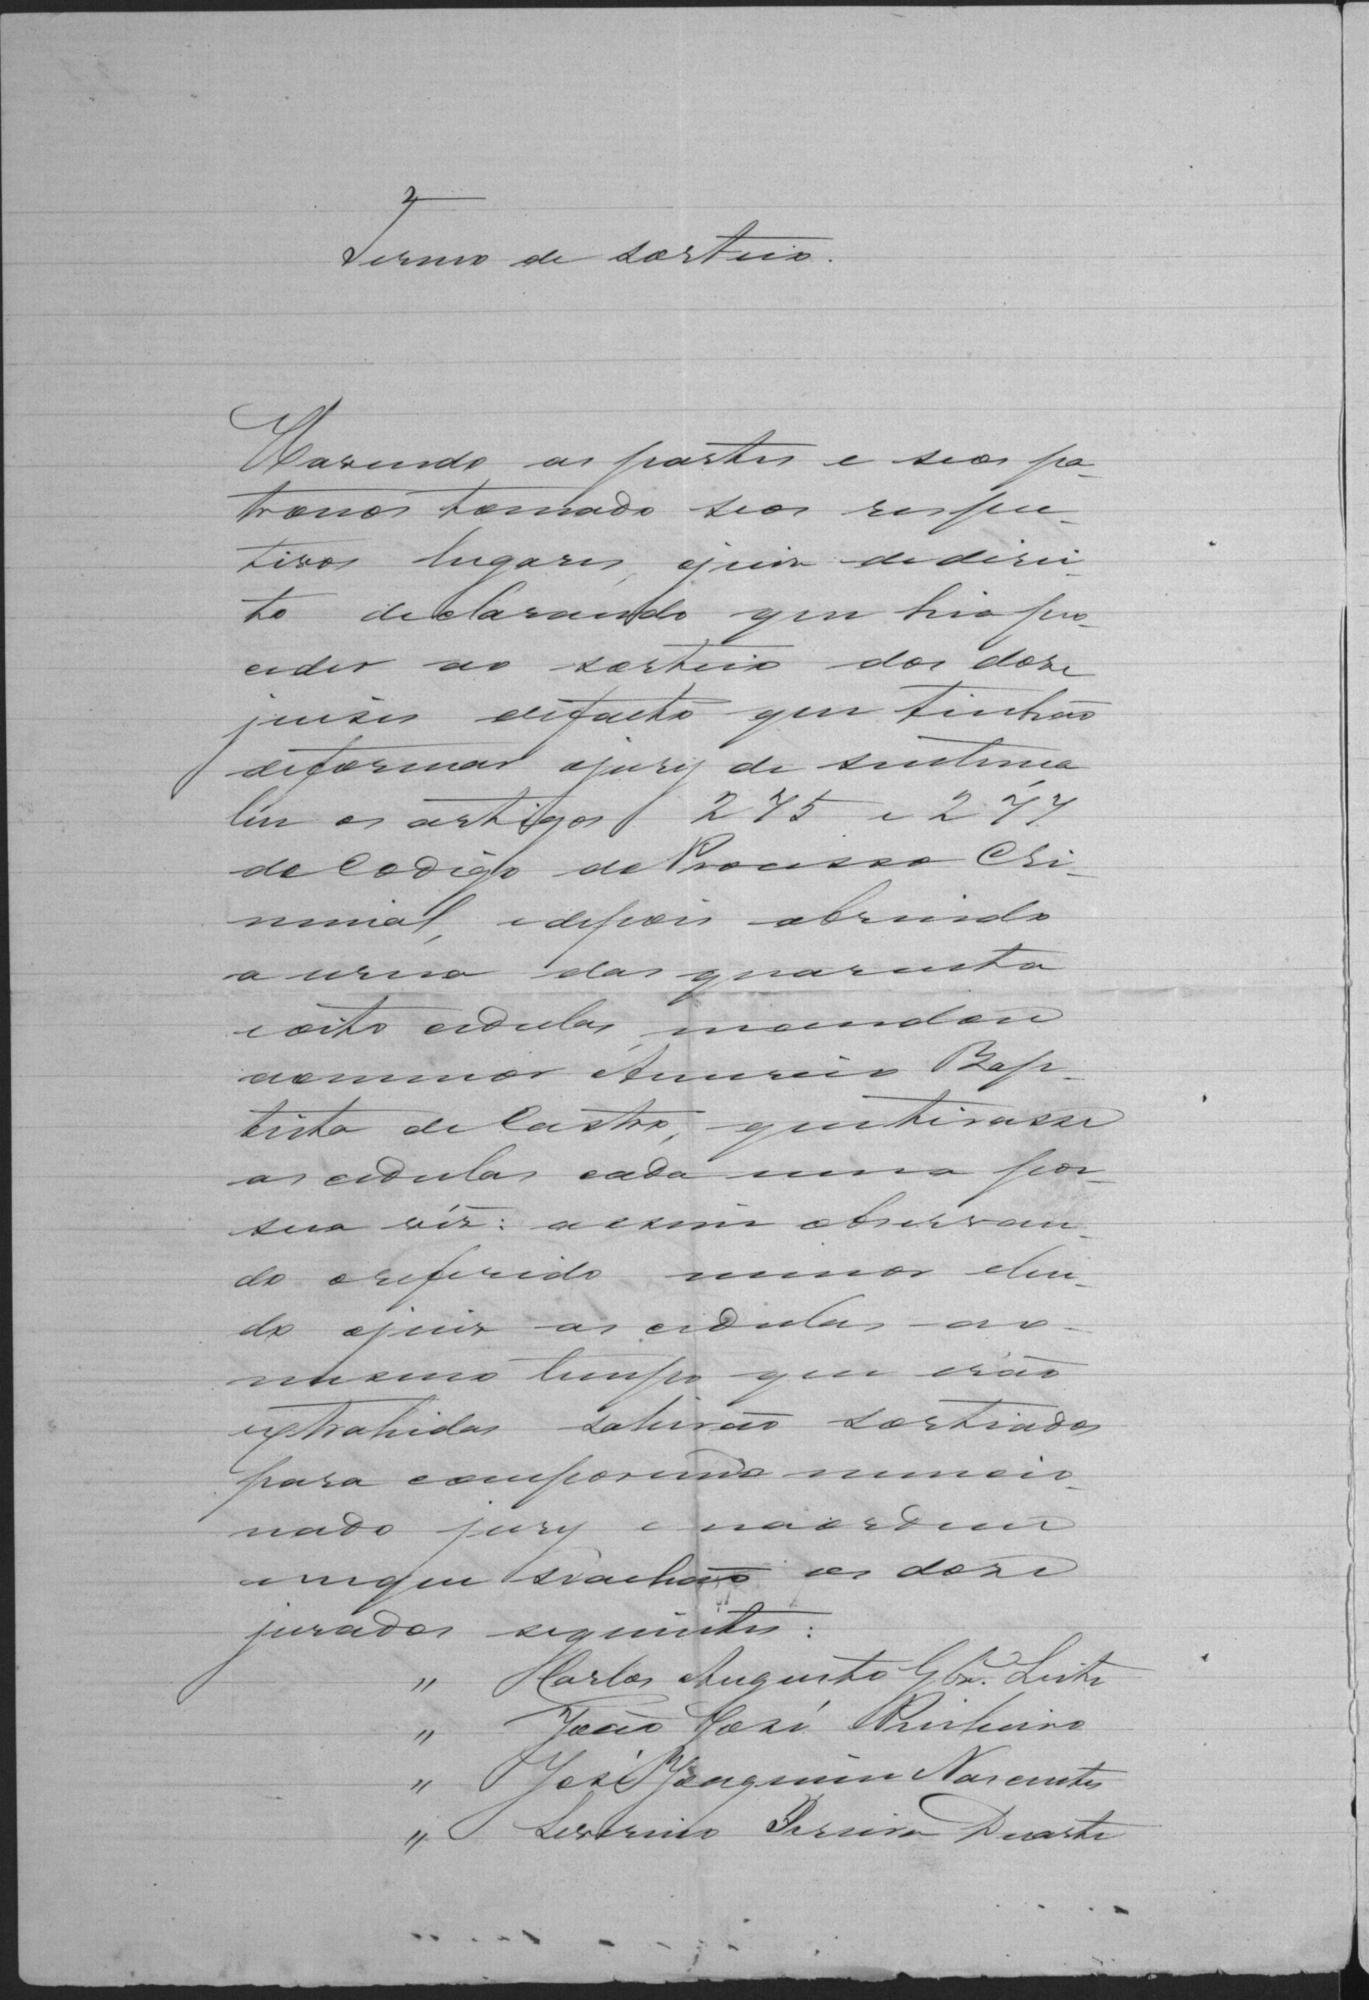 Termo de sorteio.
Havendo as partes e seos pa-
tronos tomado seos respec-
tivos lugares, ojuiz dedirei-
to declarando que hia pro-
ceder ao sorteio dos doze
juises defacto que tinhão
deformar ojury de sentença
leu os artigos 275 e 277
do Codigo do Processo Cri-
minal, edepois abrindo
a urna das quarenta
eoito cedulas, mandou
aomenor Amercio Bap-
tista de Castro, quetirasse
as cedulas cada uma por
sua vez: assim observan-
do oreferido menor e len-
do ojuiz as cedulas ao
mesmo tempo que erão
extrahidas sahirão sortiados
para comporem o mencio-
nado jury e naordem
emque se achão os doze
jurados seguintes:
" Carlos Augusto Leite
" João José Pinheiro
" José Joaquim Nascentes
" Severino Pereira Duarte